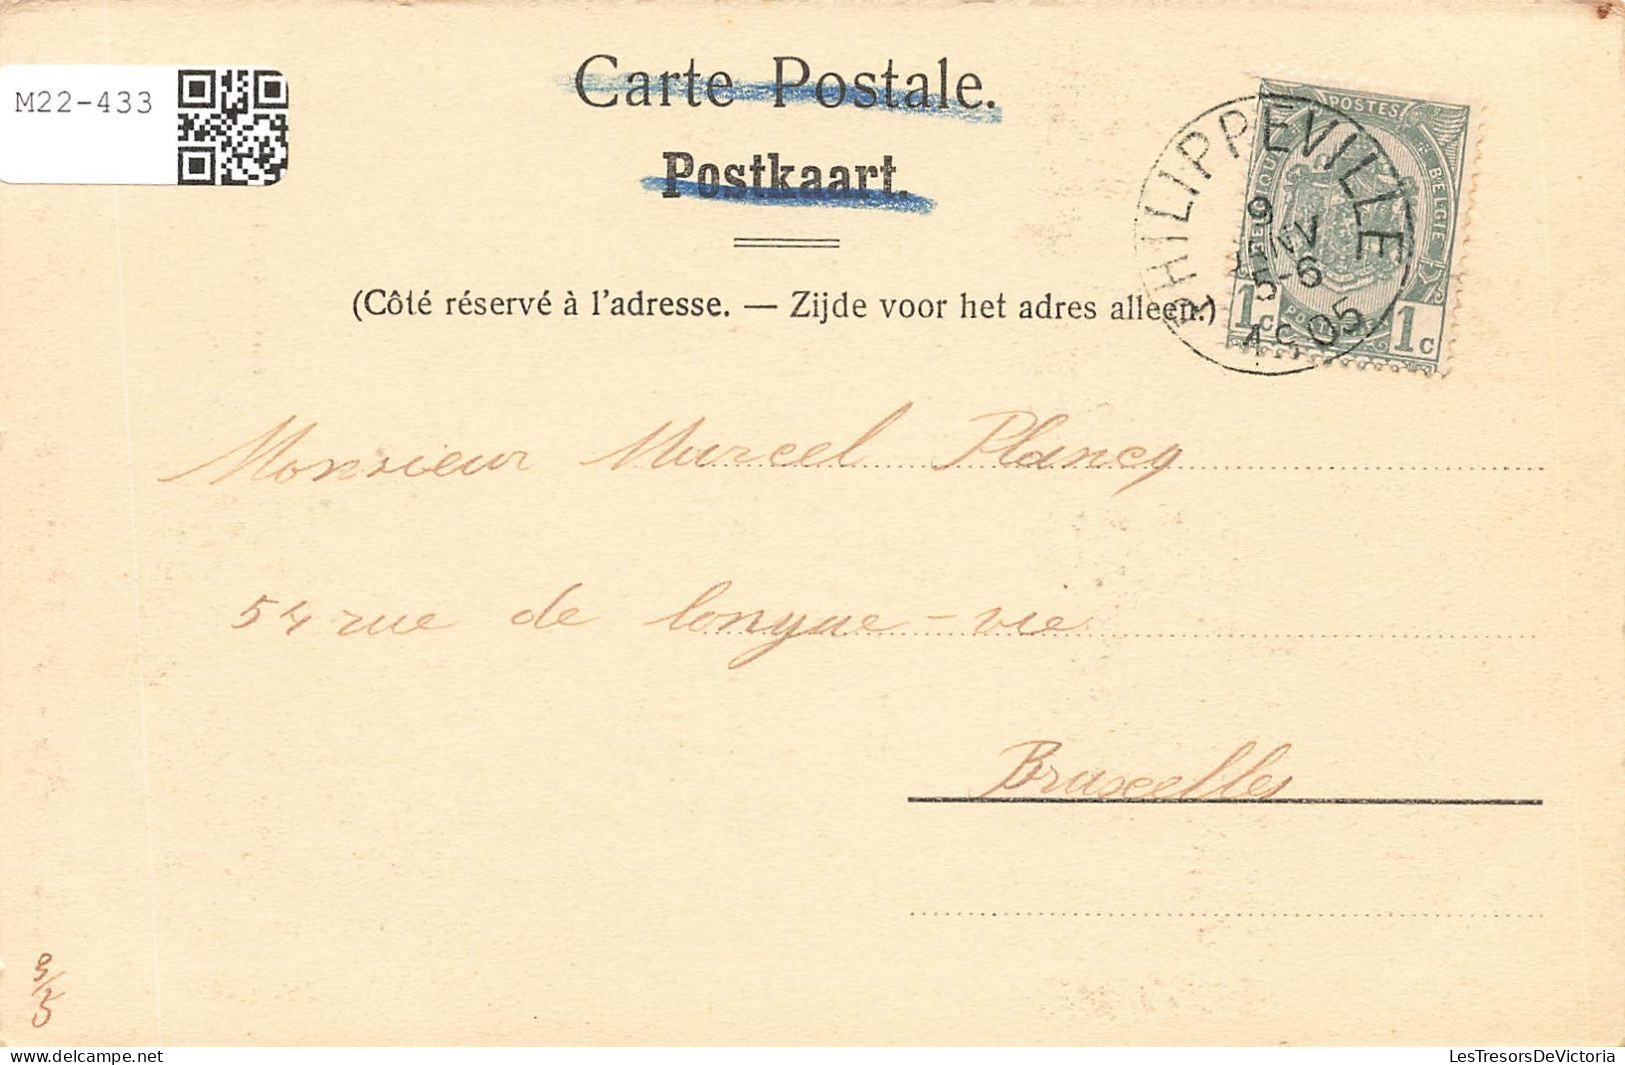 Carte Postale.
M22-433
Postkaart.
(Côté réservé à l'adresse. — Zijde voor het adres alleen.)
PHILIPPEVILLE
1905
POSTES
BELGIQUE
BELGIE
1c 1c
Monsieur Marcel Plancq
54 rue de longue-vie
Bruxelles
9/5
delcampe.net
LesTresorsDeVictoria